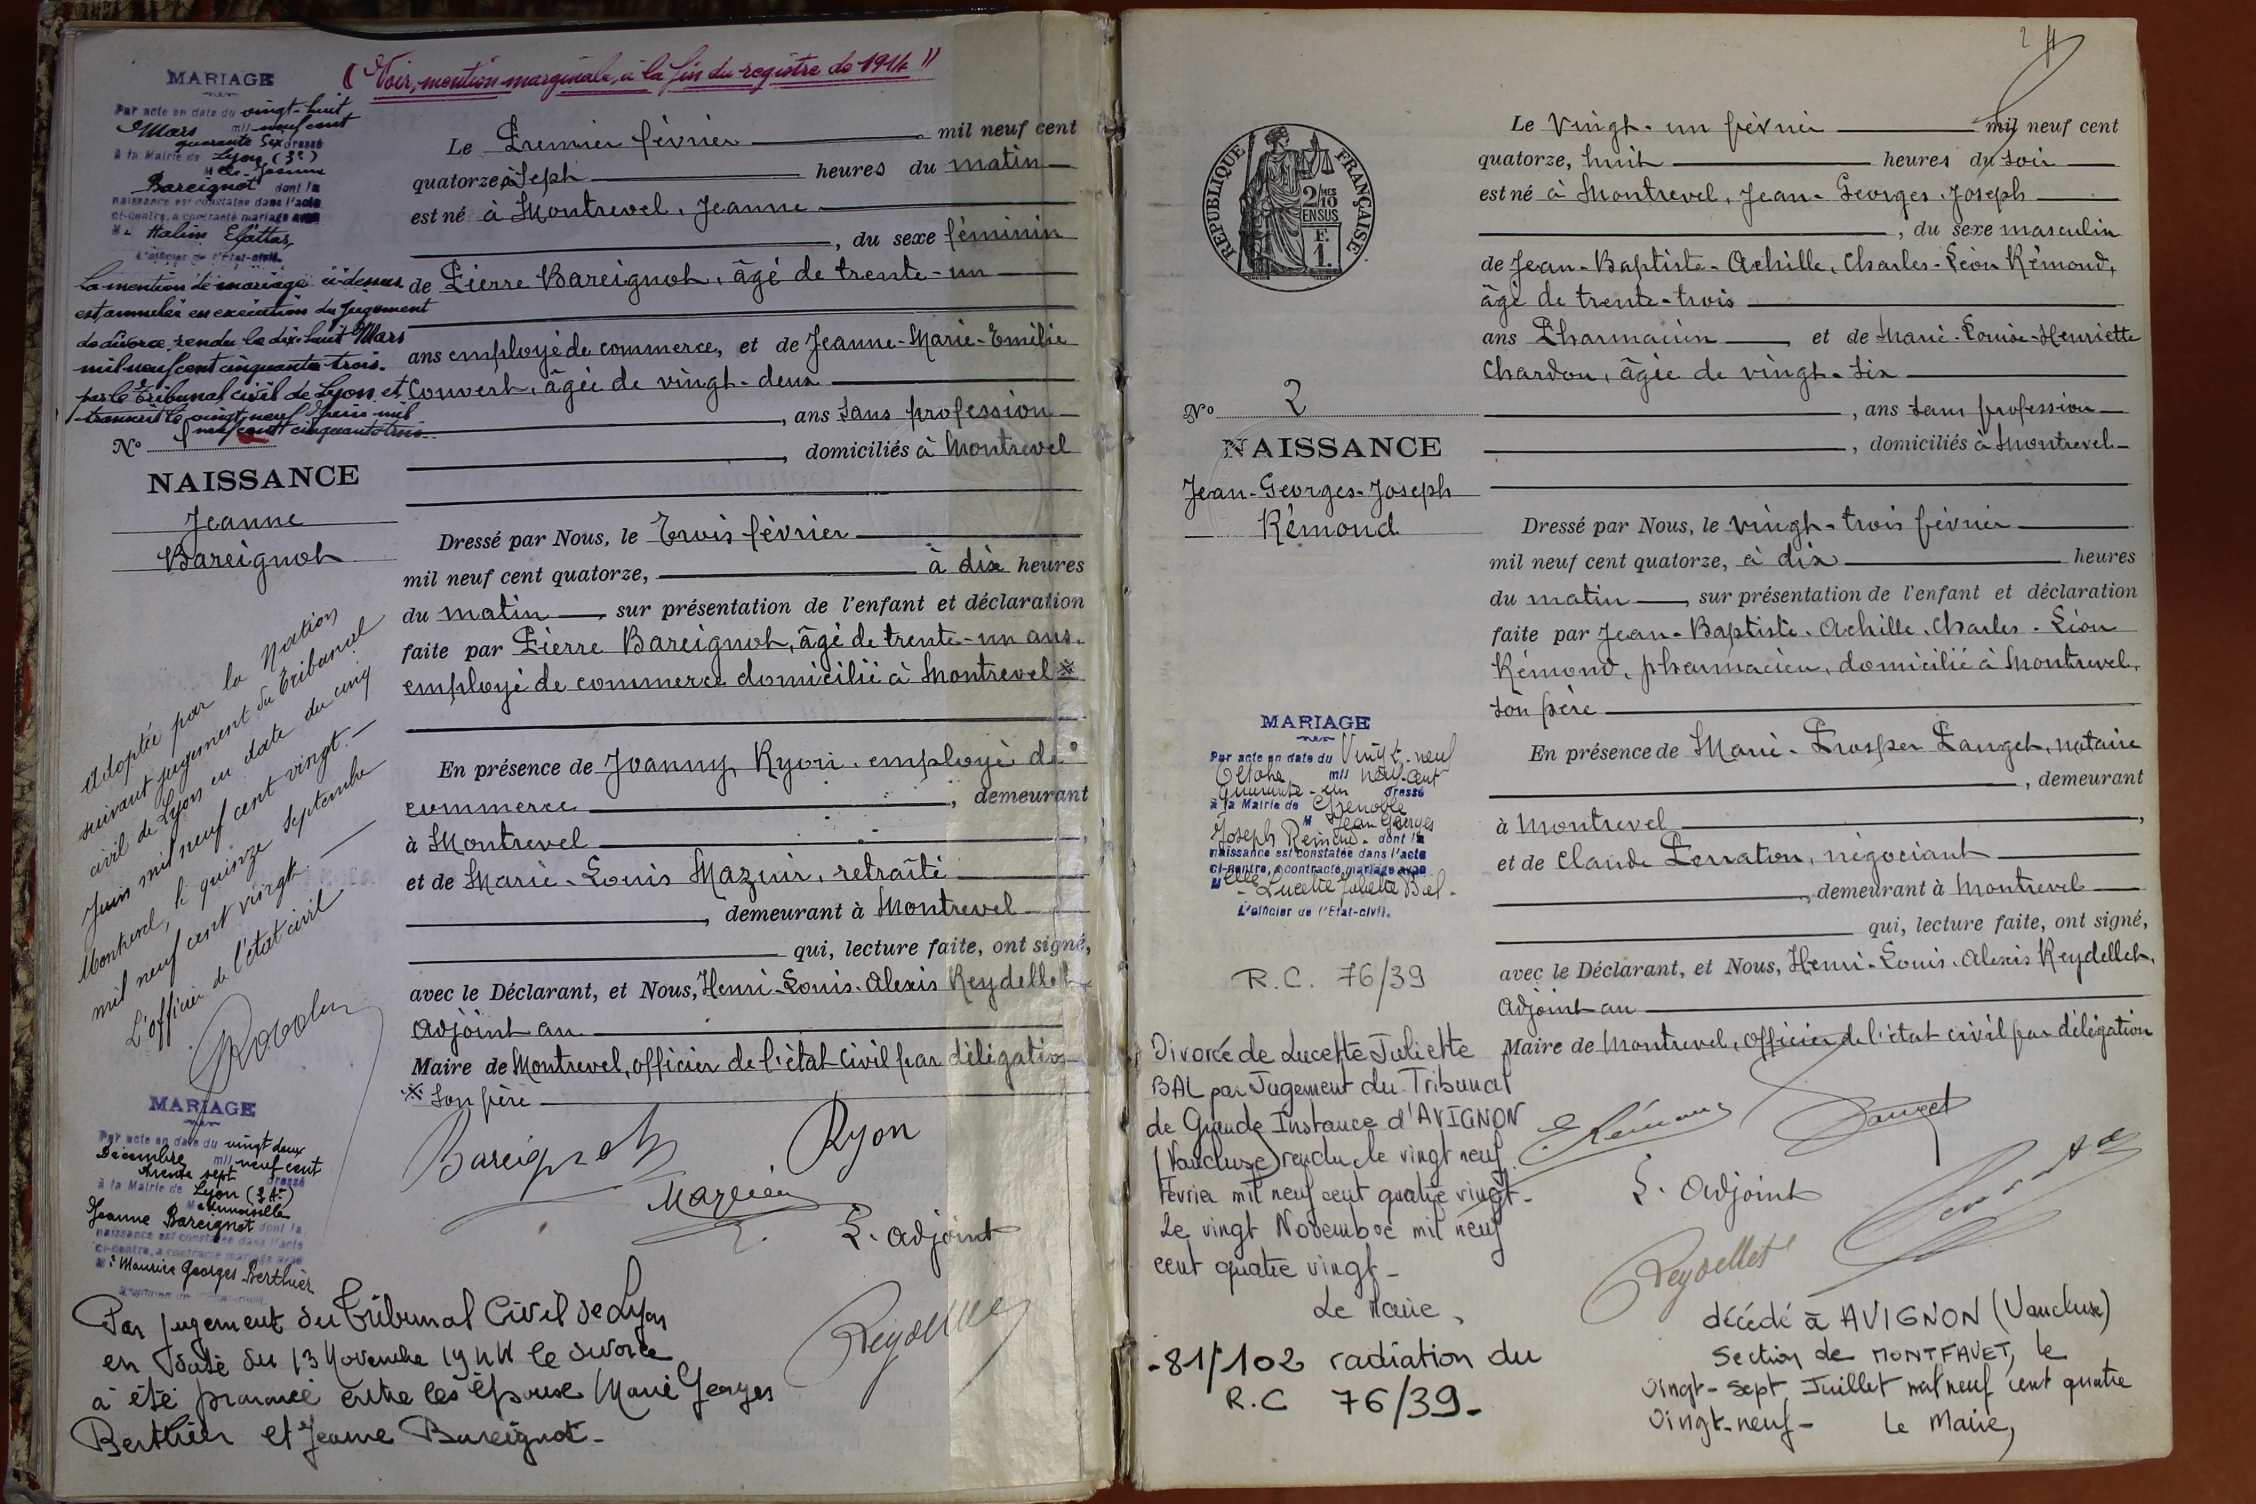 « Voir mention marginale à la fin du registre de 1914 »
MARIAGE
Par acte en date du vingt-huit
Mars mil neuf cent
quarante six dressé
à la Mairie de Lyon (3e)
Mlle Jeanne
Bareignot dont la
naissance est constatée dans l'acte
ci-contre, a contracté mariage avec
M. Halim Elattar
L'officier de l'Etat-civil.
La mention de mariage ci-dessus
est annulée en exécution du Jugement
de divorce rendu le dix-huit Mars
mil neuf cent cinquante-trois.
par le Tribunal civil de Lyon et
transcrit le vingt neuf mil
neuf cent cinquante trois.
No 1
NAISSANCE
Jeanne
Bareignot
Adoptée par la Nation
suivant jugement du Tribunal
civil de Lyon en date du cinq
Juin mil neuf cent vingt.
Montrevel, le quinze Septembre
mil neuf cent vingt.
L'officier de l'état civil
MARIAGE
Par acte en date du vingt deux
Décembre mil neuf cent
trente sept dressé
à la Mairie de Lyon
Mademoiselle
Jeanne Bareignot dont la
naissance est constatée dans l'acte
ci-contre, a contracté mariage avec
Mr Maurice Georges Berthier
Par jugement du Tribunal Civil de Lyon
en date du 13 Novembre 1944 le divorce
a été prononcé entre les époux Georges
Berthier et Jeanne Bareignot.
Le Premier février mil neuf cent
quatorze, à Sept heures du matin
est né à Montrevel, Jeanne
, du sexe féminin
de Pierre Bareignot, âgé de trente-un
ans employé de commerce, et de Jeanne-Marie-Emélie
Convert, âgée de vingt-deux
, ans sans profession
, domiciliés à Montrevel
Dressé par Nous, le Trois février
mil neuf cent quatorze, à dix heures
du matin, sur présentation de l'enfant et déclaration
faite par Pierre Bareignot, âgé de trente-un ans,
employé de commerce domicilié à Montrevel ※
En présence de Joanny Ryon, employé de
commerce, demeurant
à Montrevel
et de Marie-Louis Mazuir, retraité
, demeurant à Montrevel
qui, lecture faite, ont signé,
avec le Déclarant, et Nous, Henri-Louis-Alexis Reydellet
Adjoint au
Maire de Montrevel, officier de l'état civil par délégation
※ Son père
Bareignot
Ryon
Mazuir
L. Adjoint
Reydellet
No 2
NAISSANCE
Jean-Georges-Joseph
Rémond
RÉPUBLIQUE FRANÇAISE
2/10
EN SUS
F.
1.
Le Vingt-un février mil neuf cent
quatorze, huit heures du soir
est né à Montrevel, Jean-Georges-Joseph
, du sexe masculin
de Jean-Baptiste-Achille, Charles-Léon Rémond,
âgé de trente-trois
ans Pharmacien et de Marie-Louise-Henriette
Chardon, âgée de vingt-six
, ans sans profession
, domiciliés à Montrevel
Dressé par Nous, le vingt-trois février
mil neuf cent quatorze, à dix heures
du matin, sur présentation de l'enfant et déclaration
faite par Jean-Baptiste-Achille, Charles-Léon
Rémond, pharmacien, domicilié à Montrevel,
son père
En présence de Marie-Prosper Pauget, notaire
, demeurant
à Montrevel,
et de Claude Perraton, négociant
, demeurant à Montrevel
qui, lecture faite, ont signé,
avec le Déclarant, et Nous, Henri-Louis-Alexis Reydellet,
Adjoint au
Maire de Montrevel, officier de l'état civil par délégation
Rémond
Pauget
L. Adjoint
Reydellet
MARIAGE
Par acte en date du Vingt-neuf
Octobre mil neuf-cent
Quarante-un dressé
à la Mairie de Grenoble
M Jean Georges
Joseph Rémond dont la
naissance est constatée dans l'acte
ci-contre, a contracté mariage avec
Melle Lucette Juliette Bal.
L'officier de l'Etat-civil.
R.C. 76/39
Divorcé de Lucette Juliette
BAL par Jugement du Tribunal
de Grande Instance d'AVIGNON
(Vaucluse) rendu le vingt neuf
Février mil neuf cent quatre vingt-
Le vingt Novembre mil neuf
cent quatre vingt-
Le Maire,
-81/102 radiation du
R.C 76/39-
décédé à AVIGNON (Vaucluse)
Section de MONTFAVET, le
vingt-sept Juillet mil neuf cent quatre
vingt-neuf- Le Maire,